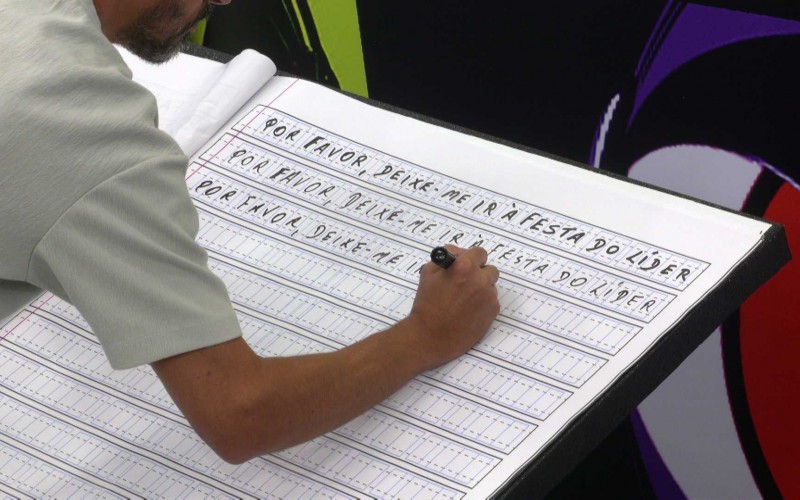 POR FAVOR, DEIXE-ME IR À FESTA DO LÍDER
POR FAVOR, DEIXE-ME IR À FESTA DO LÍDER
POR FAVOR, DEIXE-ME I